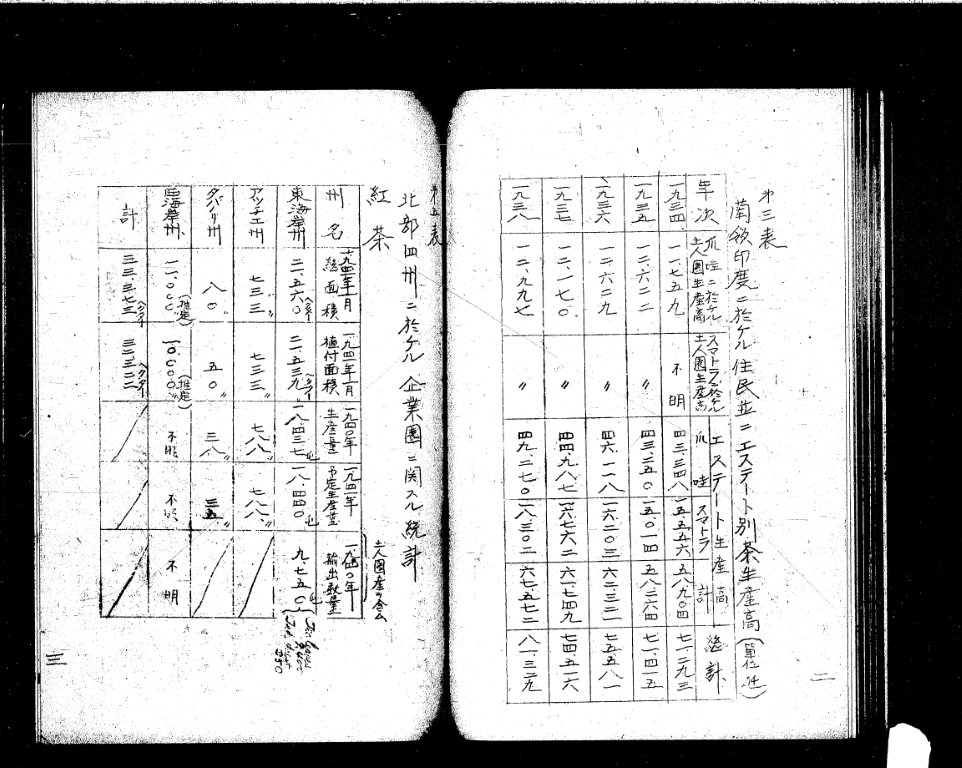 第三表
蘭領印度ニ於ケル住民並ニエステート別茶生産高(單位 瓲)
年次 爪哇ニ於ケル土人園生産高 スマトラニ於ケル土人園生産高 エステート生産高 爪哇 スマトラ 計 總計
一九三四 一一、七五九 不明 四三、三四八 一五、五五六 五八、九〇四 七一、二九三
一九三五 一二、六二二 〃 四三、二五〇 一五、〇一四 五八、二六四 七一、四一五
一九三六 一二、六二九 〃 四六、一一八 一六、二〇三 六二、三二一 七五、五八一
一九三七 一二、一七〇 〃 四四、九八七 一六、七六二 六一、七四九 七四、五一六
一九三八 一二、九九七 〃 四九、二七〇 一八、三〇二 六七、五七二 八一、三二九
二
第五表
北部四州ニ於ケル企業園ニ関スル統計
紅茶
土人園産ヲ含ム
州名 一九四一年一月總面積 一九四一年一月植付面積 一九四〇年生産量 一九四一年予定生産量 一九四〇年輸出数量
東海岸州 二一、五六〇ヘクター 二一、五三九ヘクター 一八、四三七瓲 一八、四四〇瓲 九、七五〇瓲
アッチエ州 七三三〃 七三三〃 七八八〃 七八八〃
タパヌリ州 八〇〃 五〇〃 三八〃 三五〃
西海岸州 一一、〇〇〇〃(推定) 一〇、〇〇〇〃(推定) 不明 不明 不明
計 三三、三七三ヘクター 三二、三二二ヘクター
三